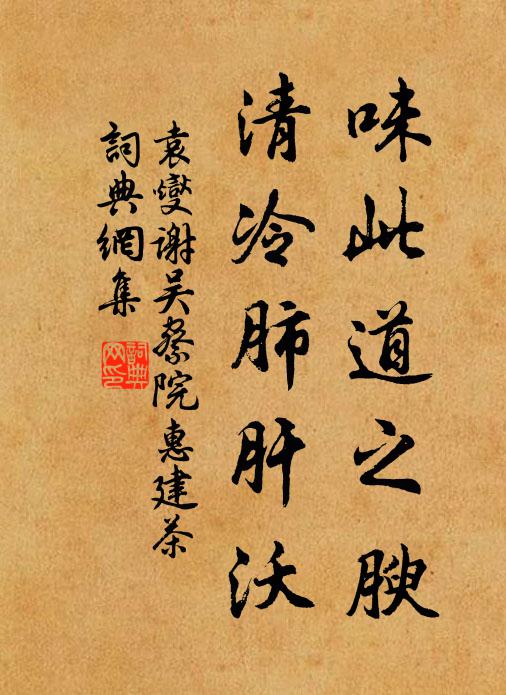 味此道之腴
清冷肺肝沃
袁燮謝吴察院惠建茶
詞典網集
詞典網印